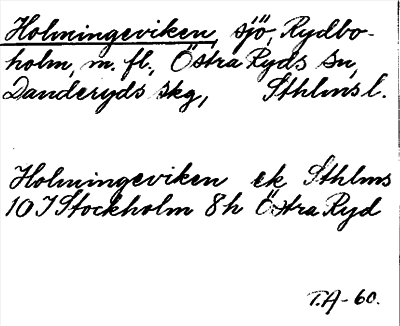 Holmingeviken, sjö, Rydbo-
holm, m. fl., Östra Ryds sn,
Danderyds skg, Sthlms l.
Holmingeviken ek Sthlms
10 I Stockholm 8h Östra Ryd
T.A-60.